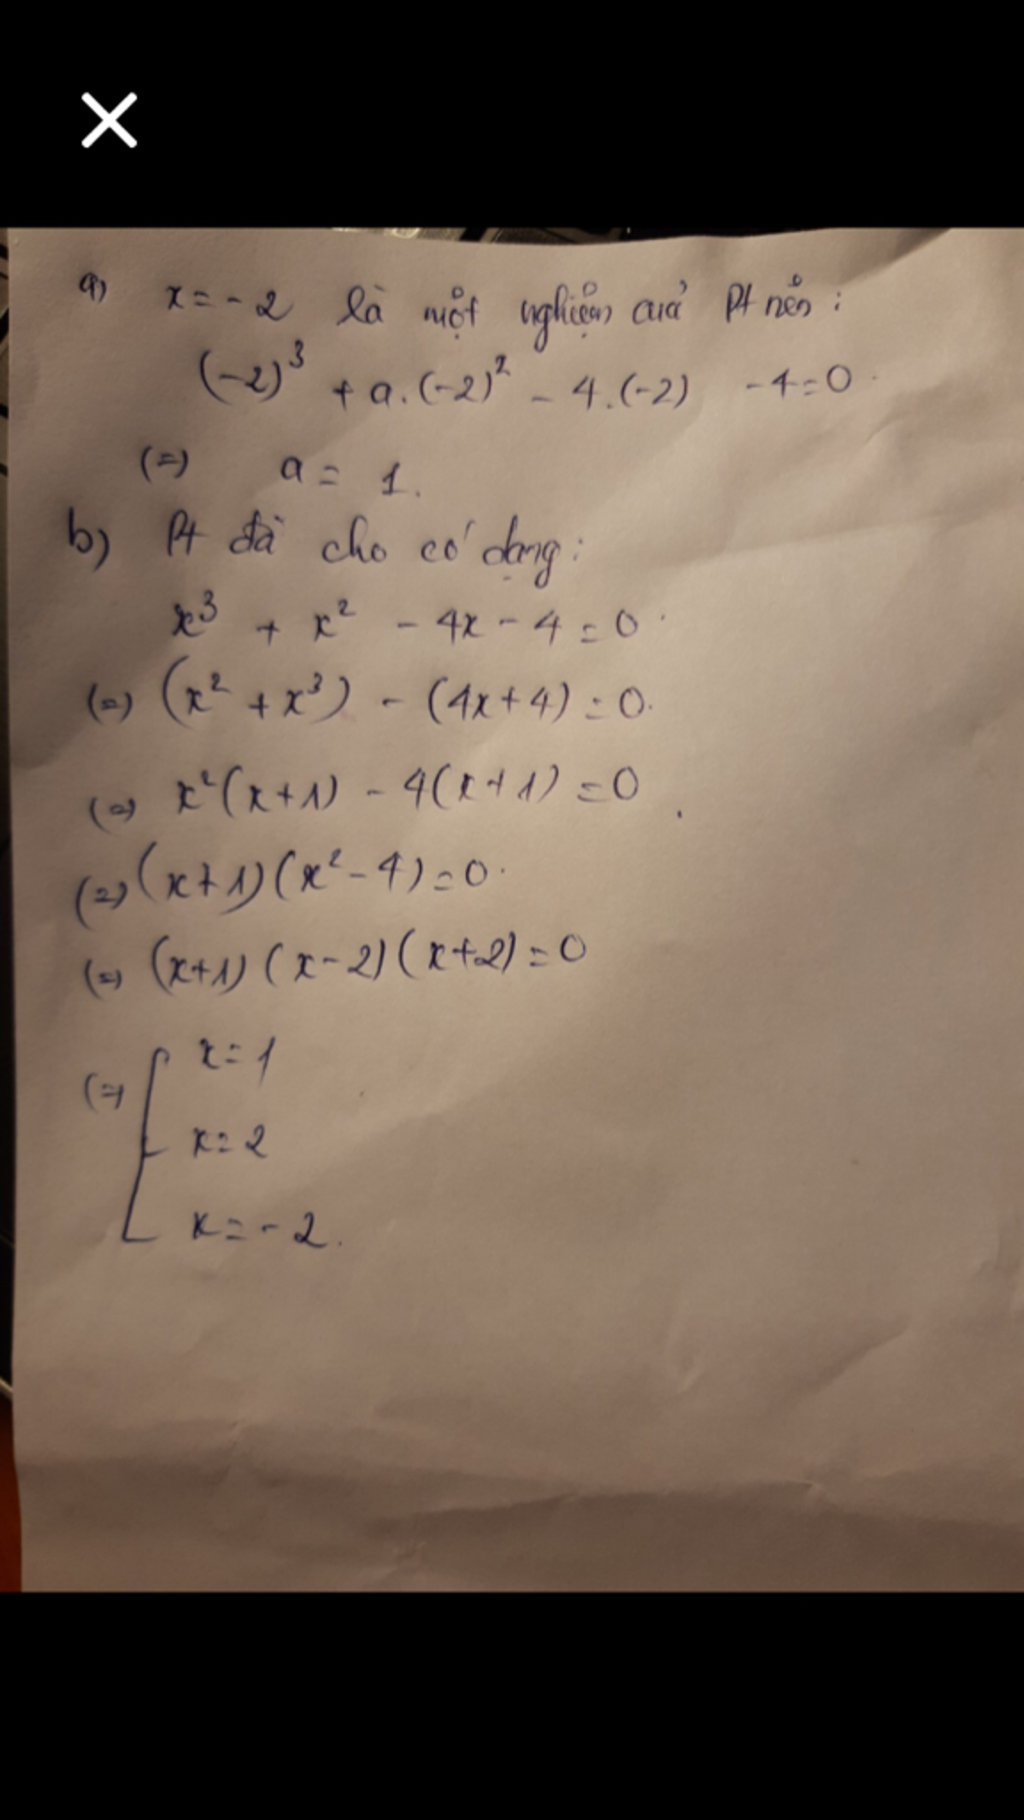 a) x = -2 là một nghiệm của Pt nên:
(-2)³ + a.(-2)² - 4.(-2) - 4 = 0.
(=) a = 1.
b) Pt đã cho có dạng:
x³ + x² - 4x - 4 = 0.
(=) (x² + x³) - (4x + 4) = 0.
(=) x²(x+1) - 4(x+1) = 0.
(=) (x+1)(x² - 4) = 0.
(=) (x+1)(x-2)(x+2) = 0
x = 1
(=)
x = 2
x = -2.